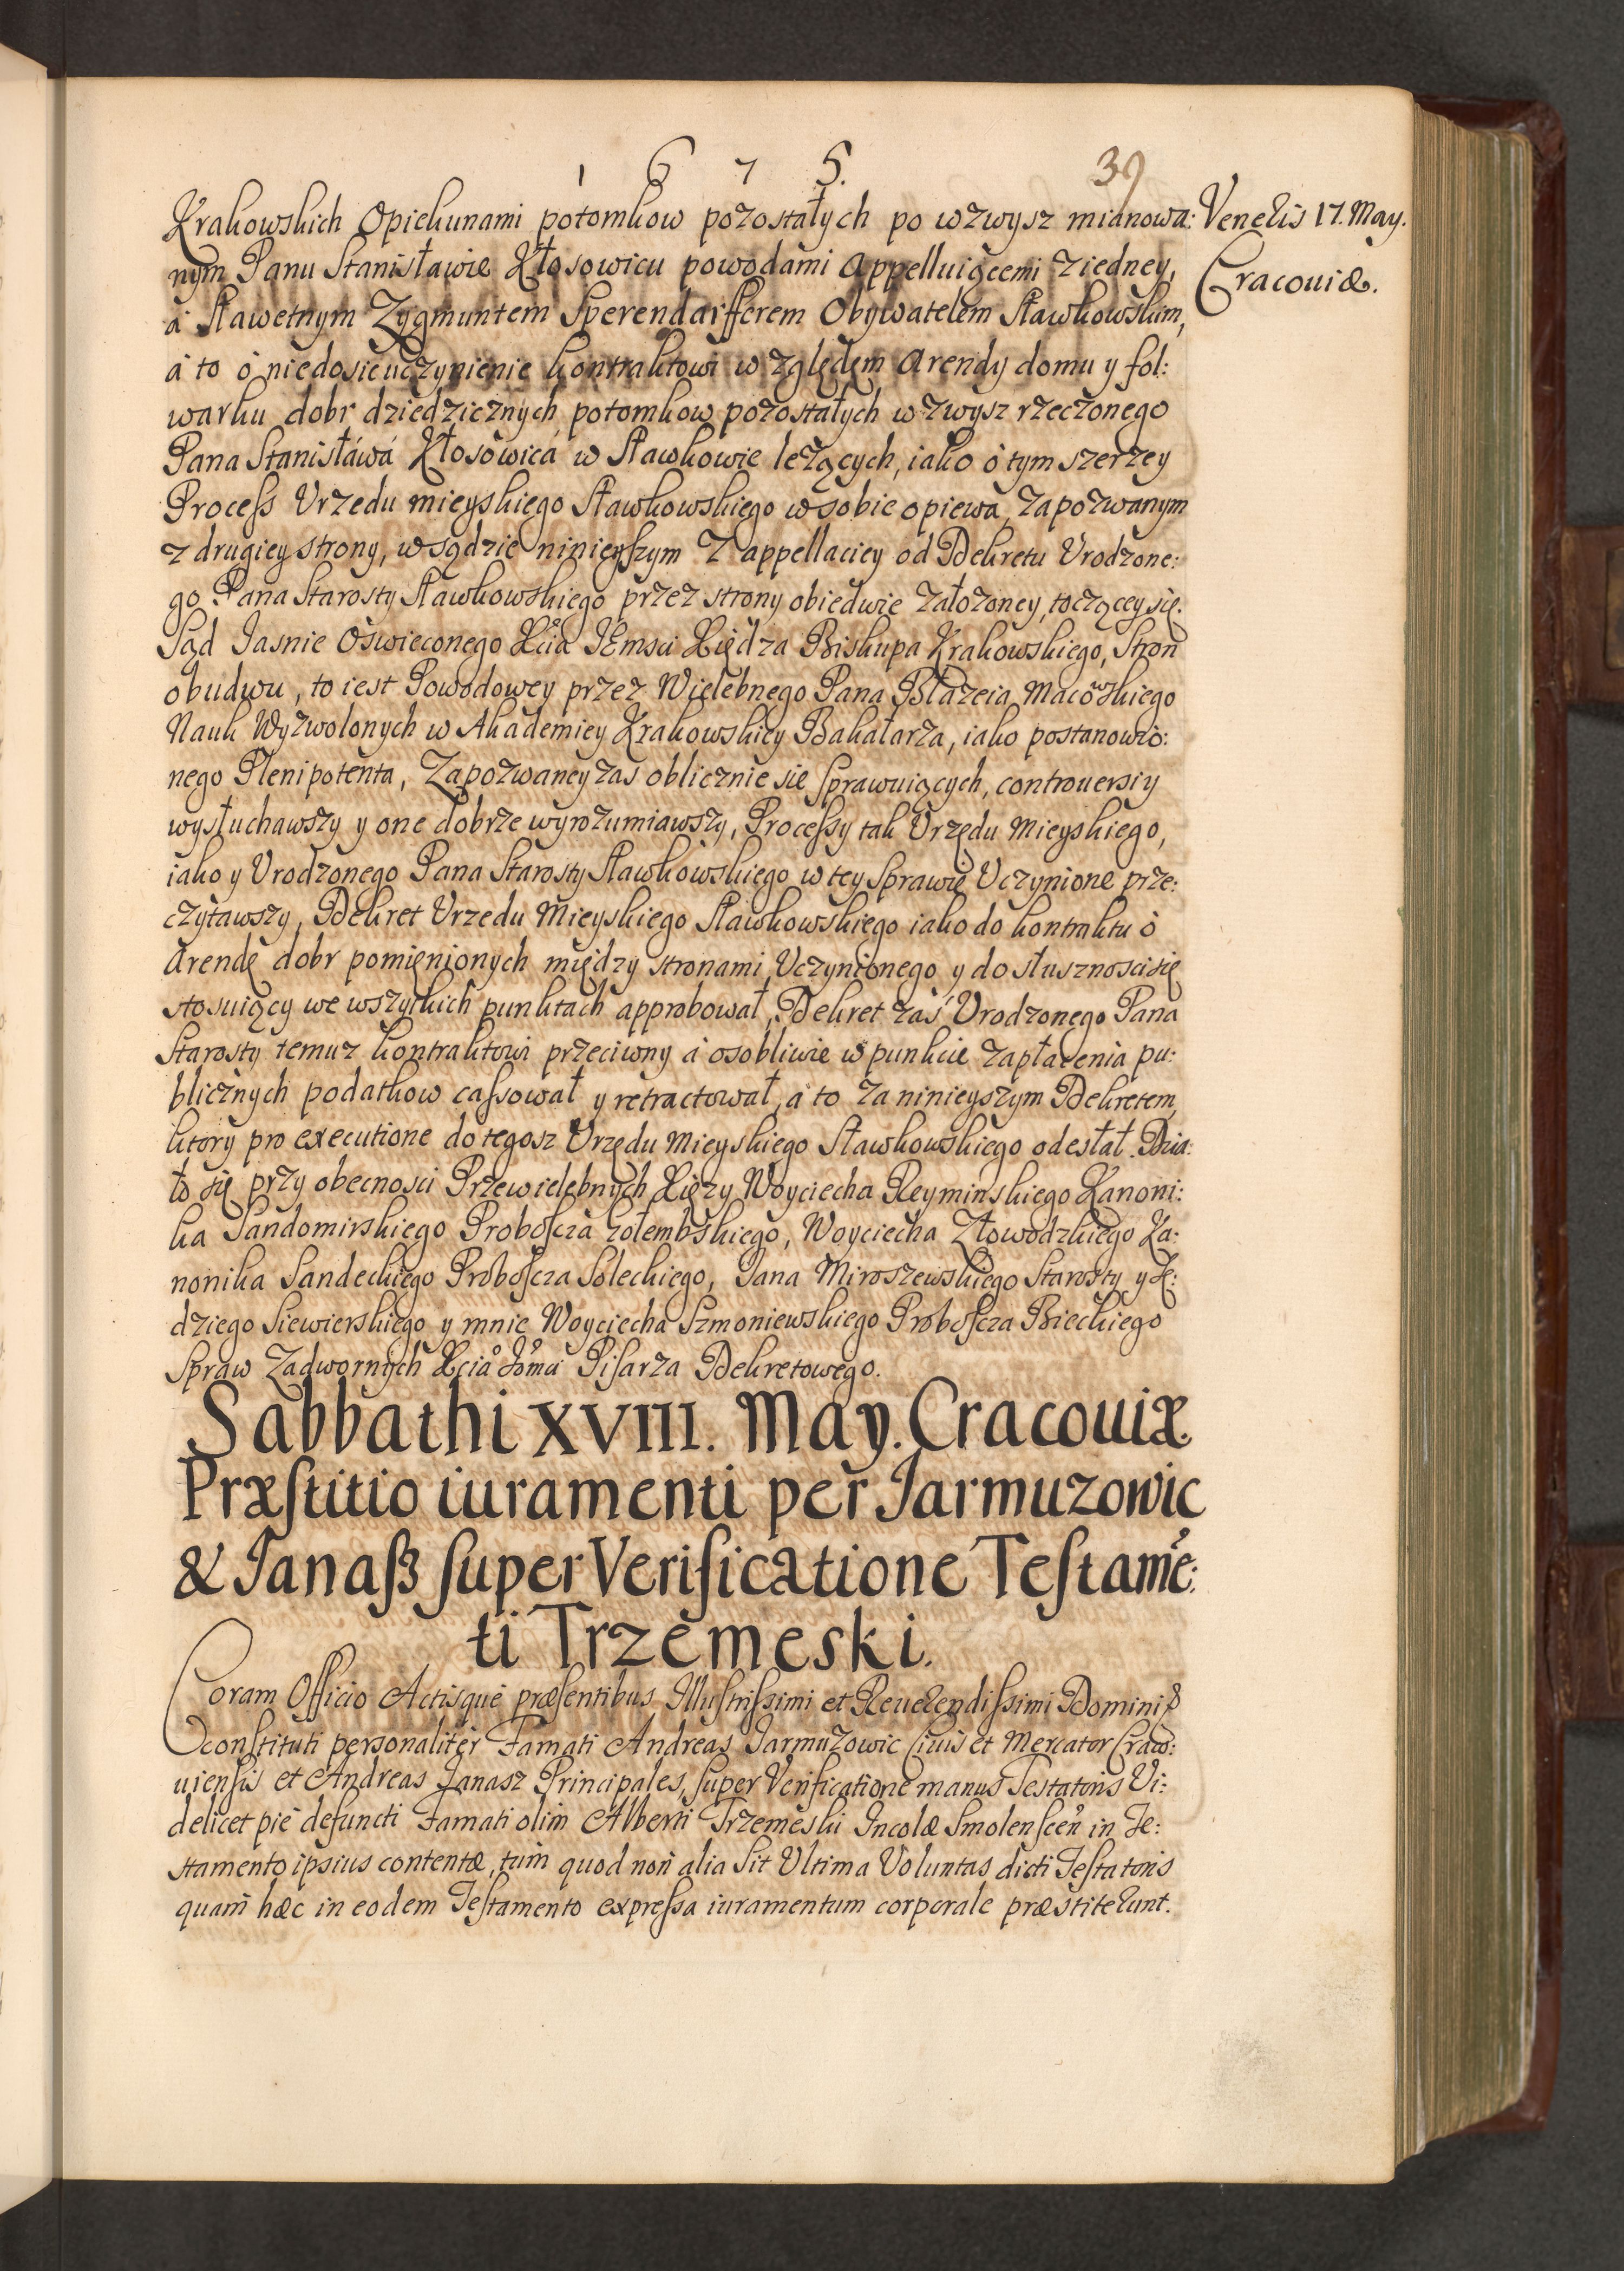 1 6 7 5.
39
Krakowskich Opiekunami potomkow pozostałych po wzwysz mianowa:
Veneris 17. May.
Cracouiæ.
nym Panu Stanisławie Kłosowicu powodami Appelluiącemi z iedney,
á Sławetnym Zygmuntem Sperendaifferem Obywatelem Sławkowskim,
á to ó niedosieuczynienie kontraktowi względęm Arendy domu y fol:
warku dobr dziedzicznych potomkow pozostałych wzwysz rzeczonego
Pana Stanisłáwá Kłosowicá w Sławkowie leżących, iako ó tym szerzey
Process Vrzedu mieyskiego Sławkowskiego w sobie opiewa, zapozwanym
z drugiey strony, w sądzie ninieyszym z appellaciey od Dekretu Vrodzone:
go Pana Starosty Sławkowskiego przez strony obiedwie założoney, toczącey się.
Sąd Iasnie Oświeconego Xcia IEmsci Xiędza Biskupa Krakowskiego, Stron
obudwu, to iest Powodowey przez Wielebnego Pana Błażeia Macoskiego
Nauk Wyzwolonych w Akademiey Krakowskiey Bakałarza, iako postanowio:
nego Plenipotenta, Zapozwaney zas oblicznie się sprawuiących, controuersiy
wysłuchawszy y one dobrze wyrozumiawszy, Processy tak Vrzędu Mieyskiego,
iako y Vrodzonego Pana Starosty Sławkowskiego w tey sprawie Vczynione prze:
czytawszy, Dekret Vrzedu Mieyskiego Sławkowskiego iako do kontraktu ó
Arendę dobr pomienionych między stronami Vczynionego y do słusznosci się
stosuiący we wszytkich punktach approbował, Dekret zaś Vrodzonego Pana
Starosty temuz kontraktowi przeciwny á osobliwie w punkcie zapłacenia pu:
blicznych podatkow cassował y retractował, á to za ninieyszym Dekretem,
ktory pro executione do tegosz Vrzędu Mieyskiego Sławkowskiego odesłał. Dzia:
ło się przy obecnosci Przewielebnych Xięzy Woyciecha Reyminskiego Kanoni:
ka Sandomirskiego Proboscza Gołembskiego, Woyciecha Złowodzkiego Ka:
nonika Sandeckiego Proboscza Soleckiego, Iana Miroszewskiego Starosty y Sę:
dziego Siewierskiego y mnie Woyciecha Szmoniewskiego Proboscza Bieckiego
Spraw Zadwornych Xcia Pisarza Dekretowego.
Sabbathi XVIII. May. Cracouiæ.
Præstitio iuramenti per Jarmuzowic
& Janasz super Verificatione Testamẽ:
ti Trzemeski.
Coram Officio Actisque præsentibus Illustrissimi et Reuerendissimi Domini
constituti personaliter Famati Andreas Jarmuzowic Ciuis et Mercator Craco:
uiensis et Andreas Janasz Principales, super Verificatione manus Testatoris Vi:
delicet pie defuncti Famati olim Alberti Trzemeski Incolæ Smolenscen in Te:
stamento ipsius contentæ, tum quod non alia sit Vltima Voluntas dicti Testatoris
quam hæc in eodem Testamento expressa iuramentum corporale præstiterunt.